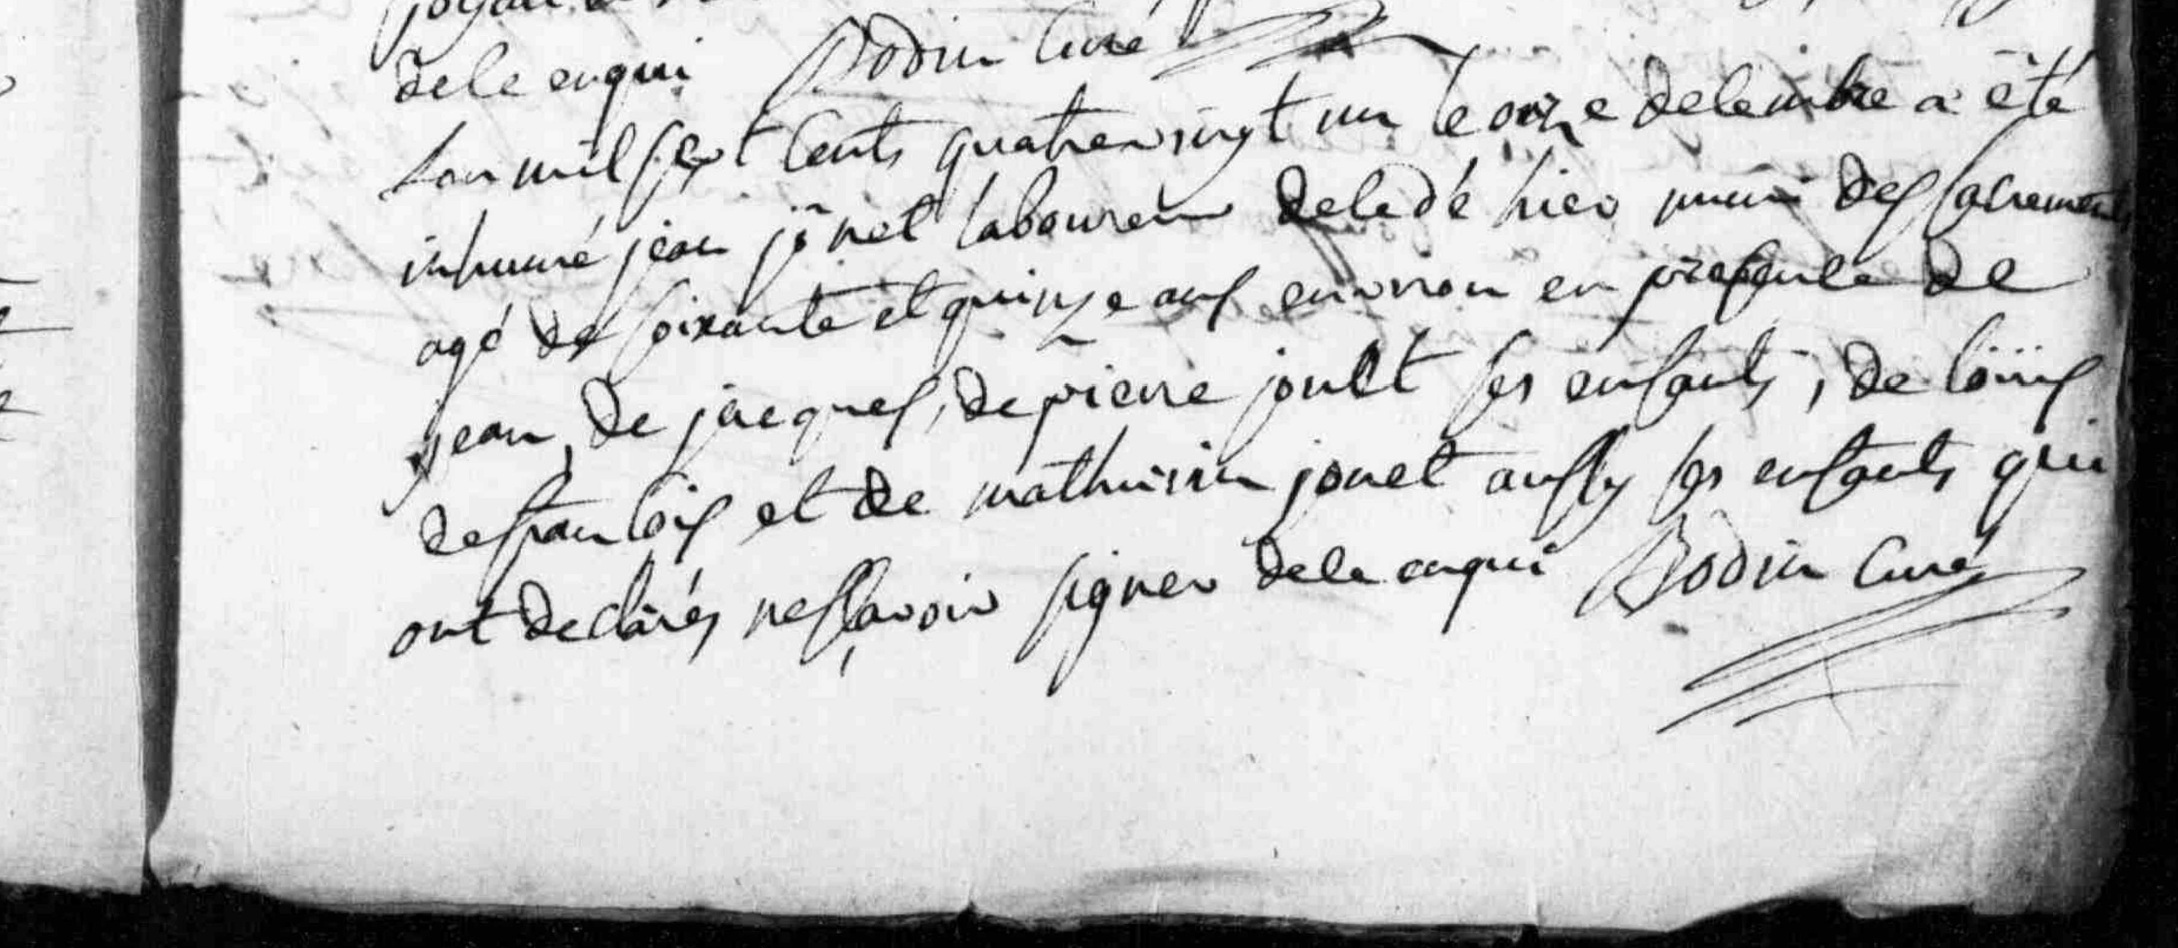 de ce enquis Bodin Curé
Lan mil sept cents quatrevingt un le onze decembre a été
inhumé jean jonet laboureur decedé hier muni des sacrements
agé de soixante et quinze ans environ en presence de
jean, de jacques, de pierre jonet ses enfants, de loüis
de francois et de mathurin jonet aussy ses enfants qui
ont declarés ne sçavoir signer de ce enquis Bodin Curé